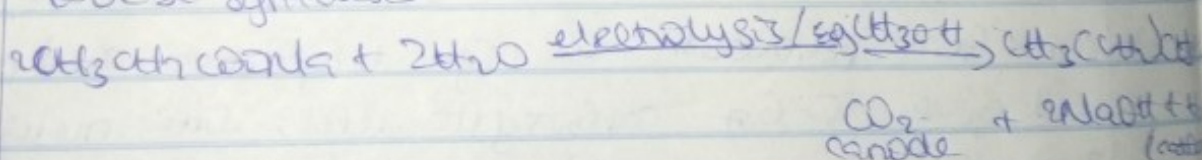 2CH3CH2COONa + 2H2O electrolysis/ CH3OH → CH3(CH2)CH
CO2 + 2NaOH + H
canode (cat